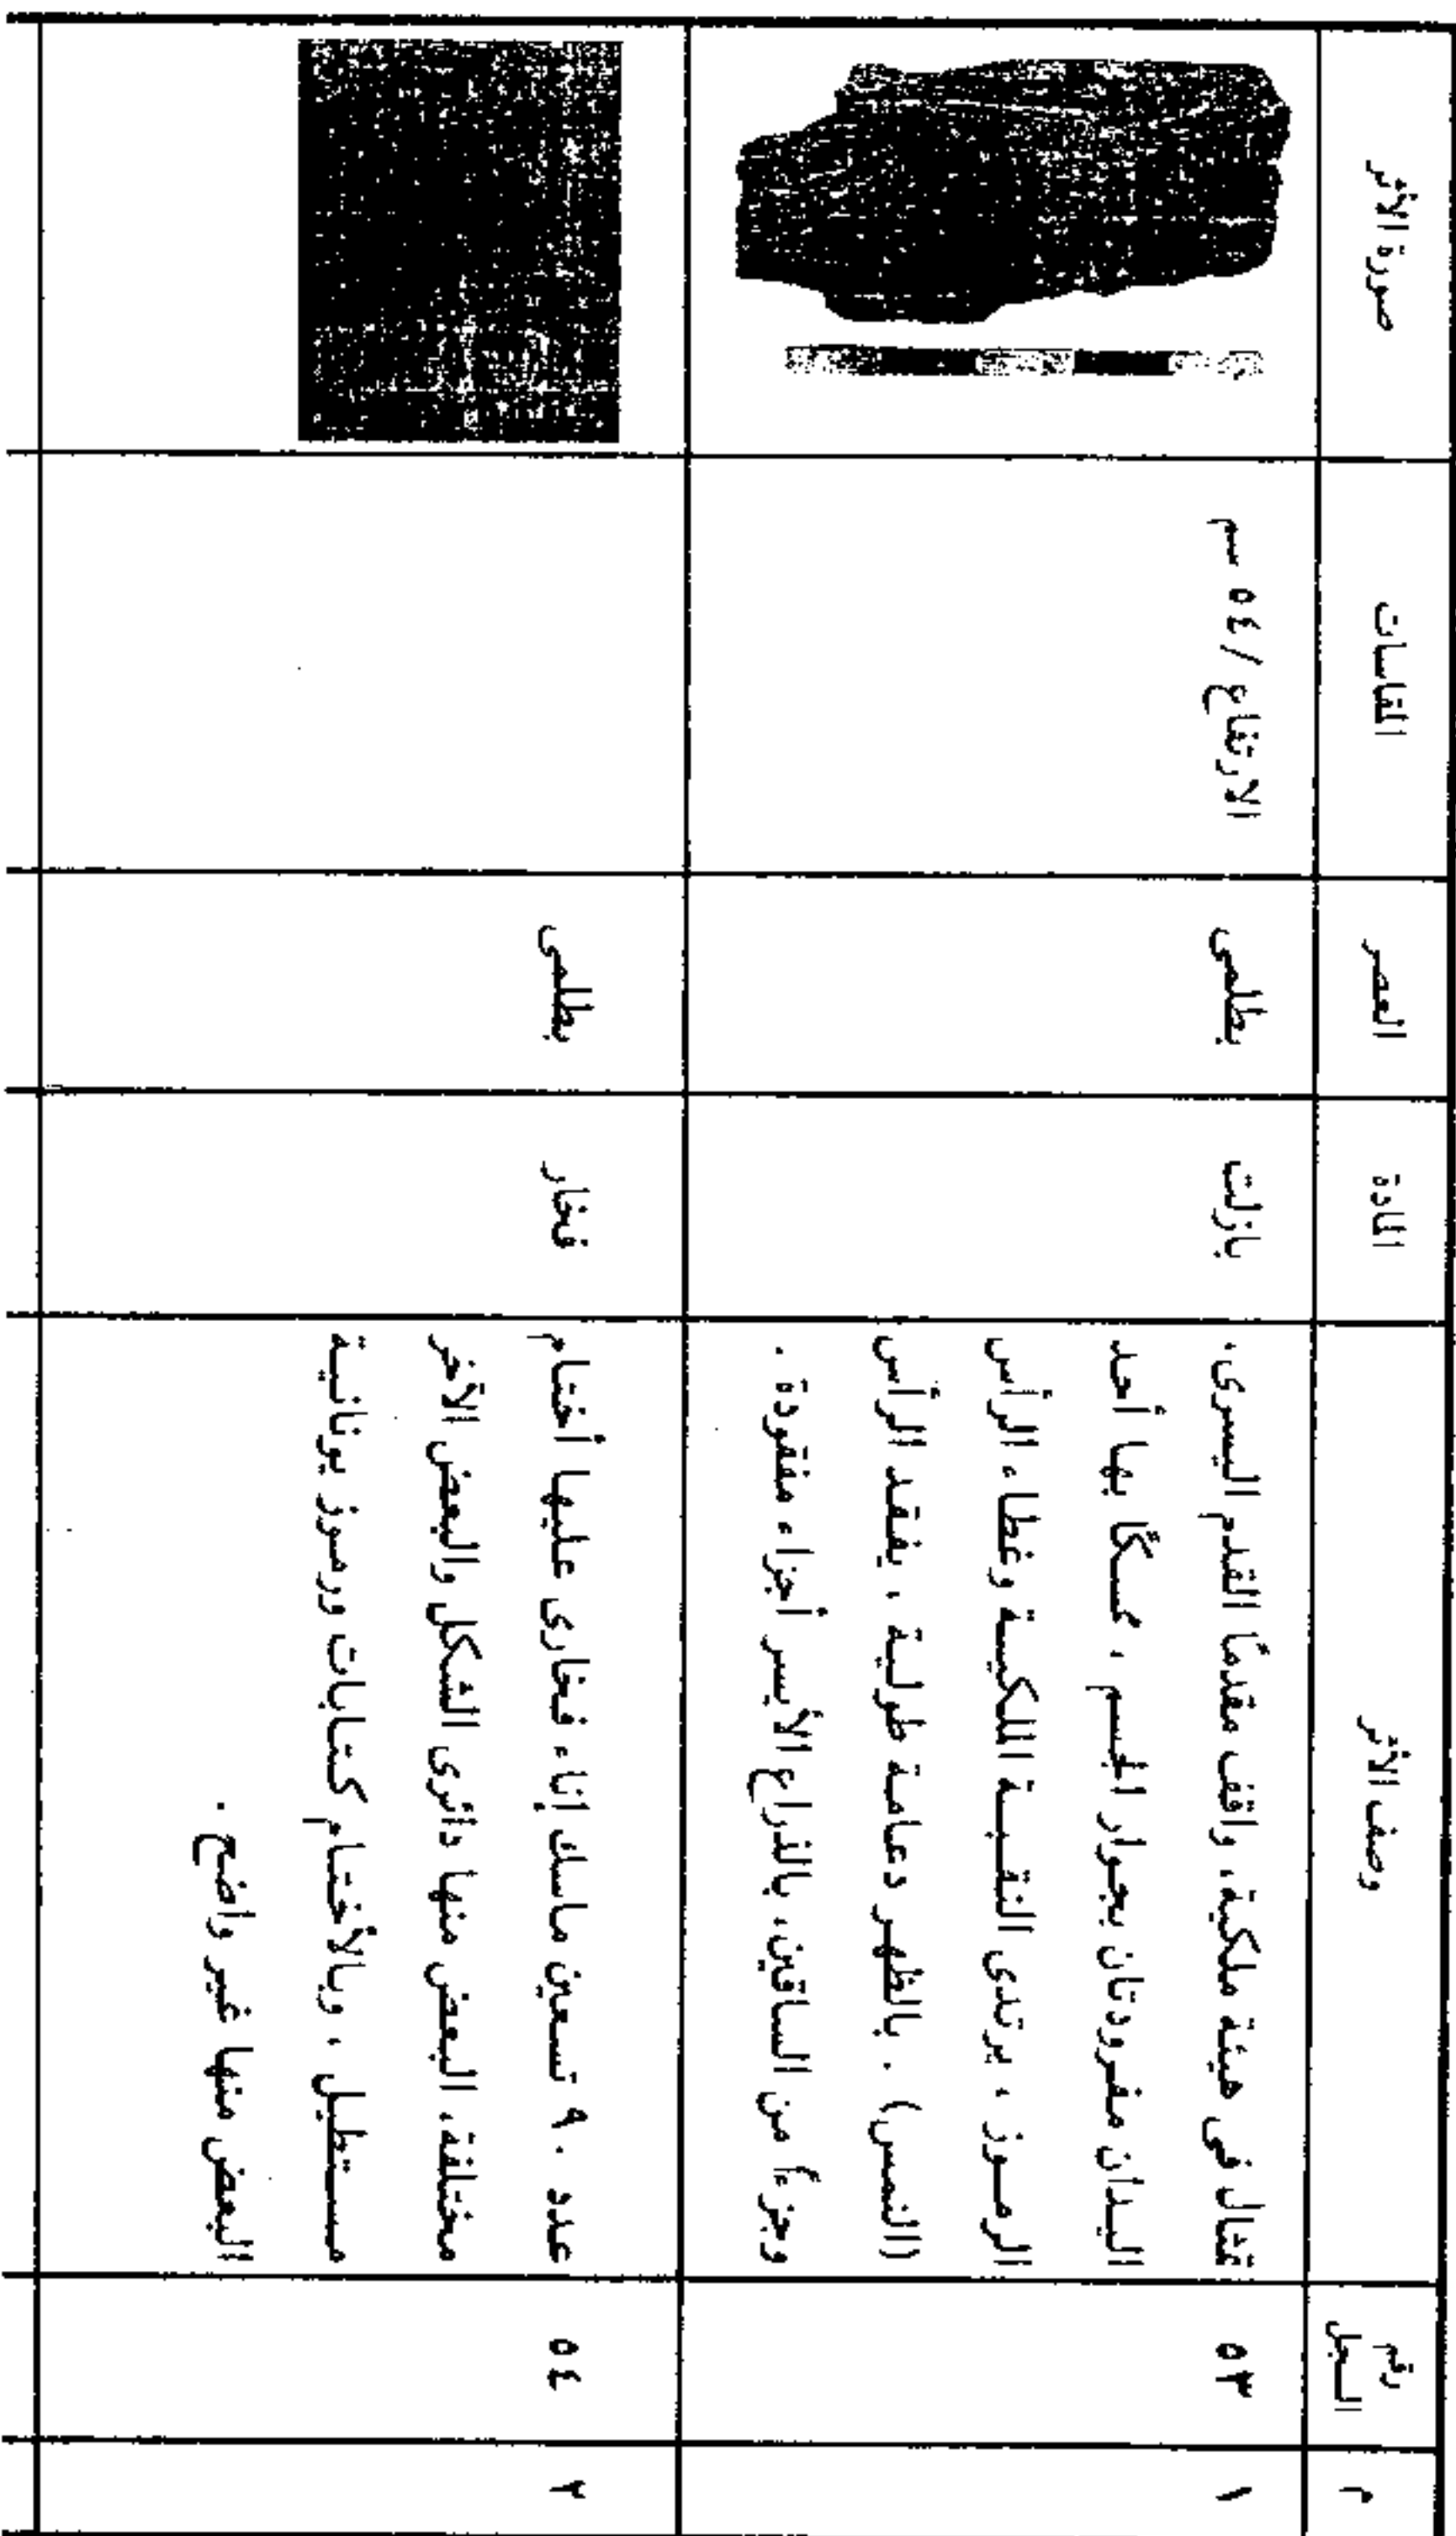 م
رقم السجل
وصف الأثر
المادة
العصر
المقاسات
صورة الأثر
١
٥٣
تمثال فى هيئة ملكية، واقف مقدمًا القدم اليسرى،
اليدان مفرودتان بجوار الجسم ، ممسكًا بها أحد
الرمـوز ، يرتدى النقـبـة الملكيـة وغطاء الرأس
(النمس) . بالظهر دعامـة طوليـة ، يفقـد الرأس
وجزءاً من الساقين، بالذراع الأيسر أجزاء مفقودة .
بازلت
بطلمى
الارتفاع / ٥٤ سم
٢
٥٤
عدد ٩٠ تسعين ماسك إناء فخارى عليها أختام
مختلفة، البعض منها دائرى الشكل والبعض الآخر
مسـتطيل ، وبالأختـام كتـابات ورمـوز يونانـيـة
البعض منها غير واضح .
فخار
بطلمى